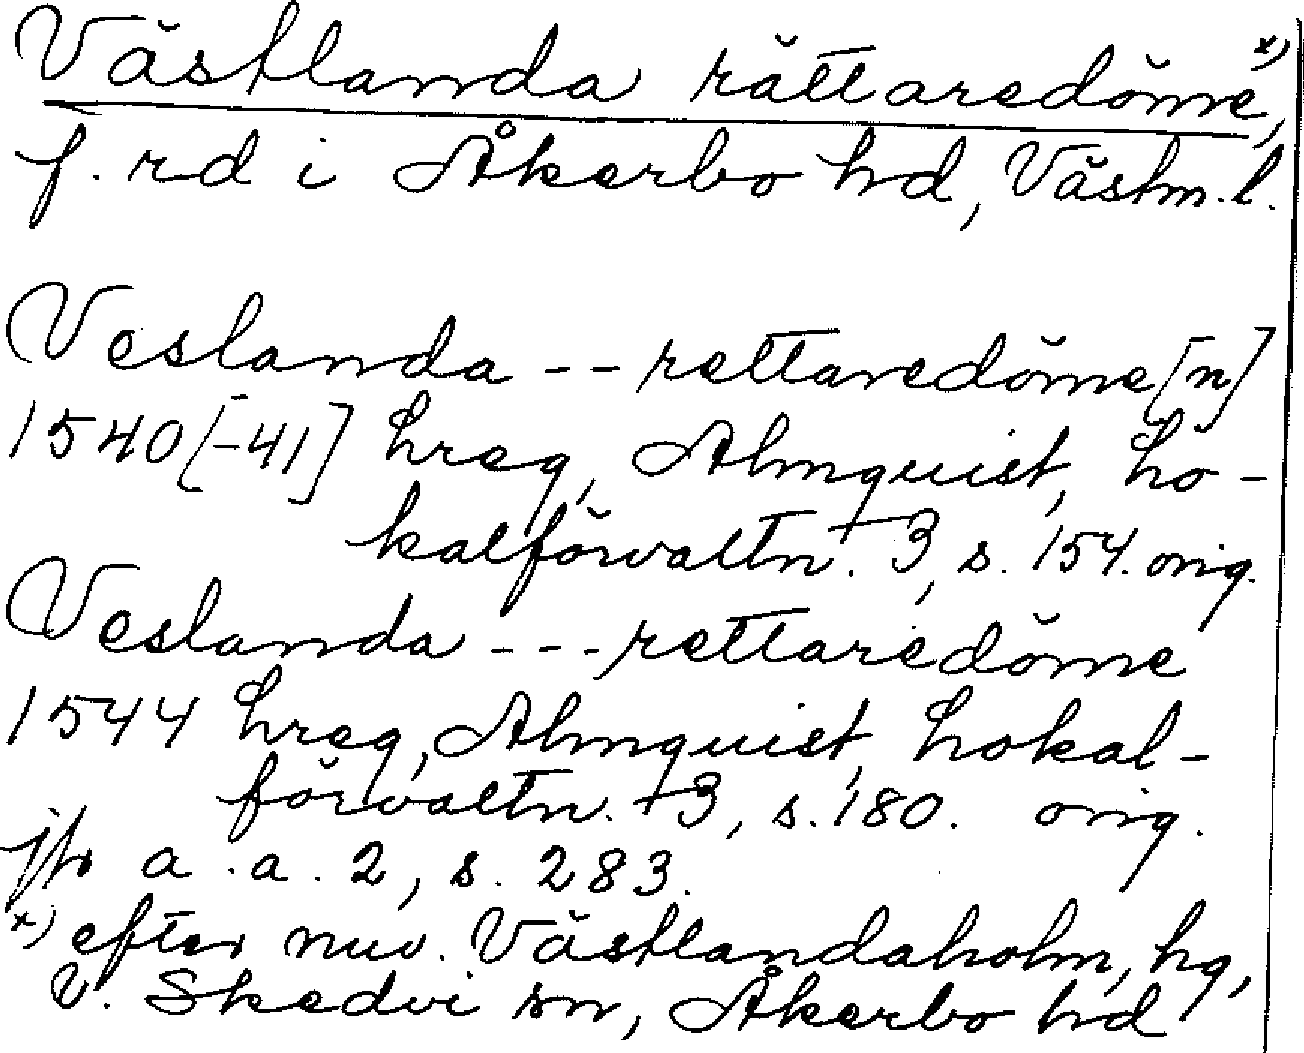 Västlanda rättaredöme, x)
f. rd i Åkerbo hd, Västm. l.
Veslanda -- rettaredöme[n]
1540[-41] hreg, Almquist, Lo-
kalförvaltn. 3, s. 154. orig.
Veslanda --- rettaredöme
1544 hreg, Almquist, Lokal-
förvaltn. 3, s. 180. orig.
jfr a.a. 2, s. 283.
x) efter nuv. Västlandaholm, hg,
V. Skedvi sn, Åkerbo hd